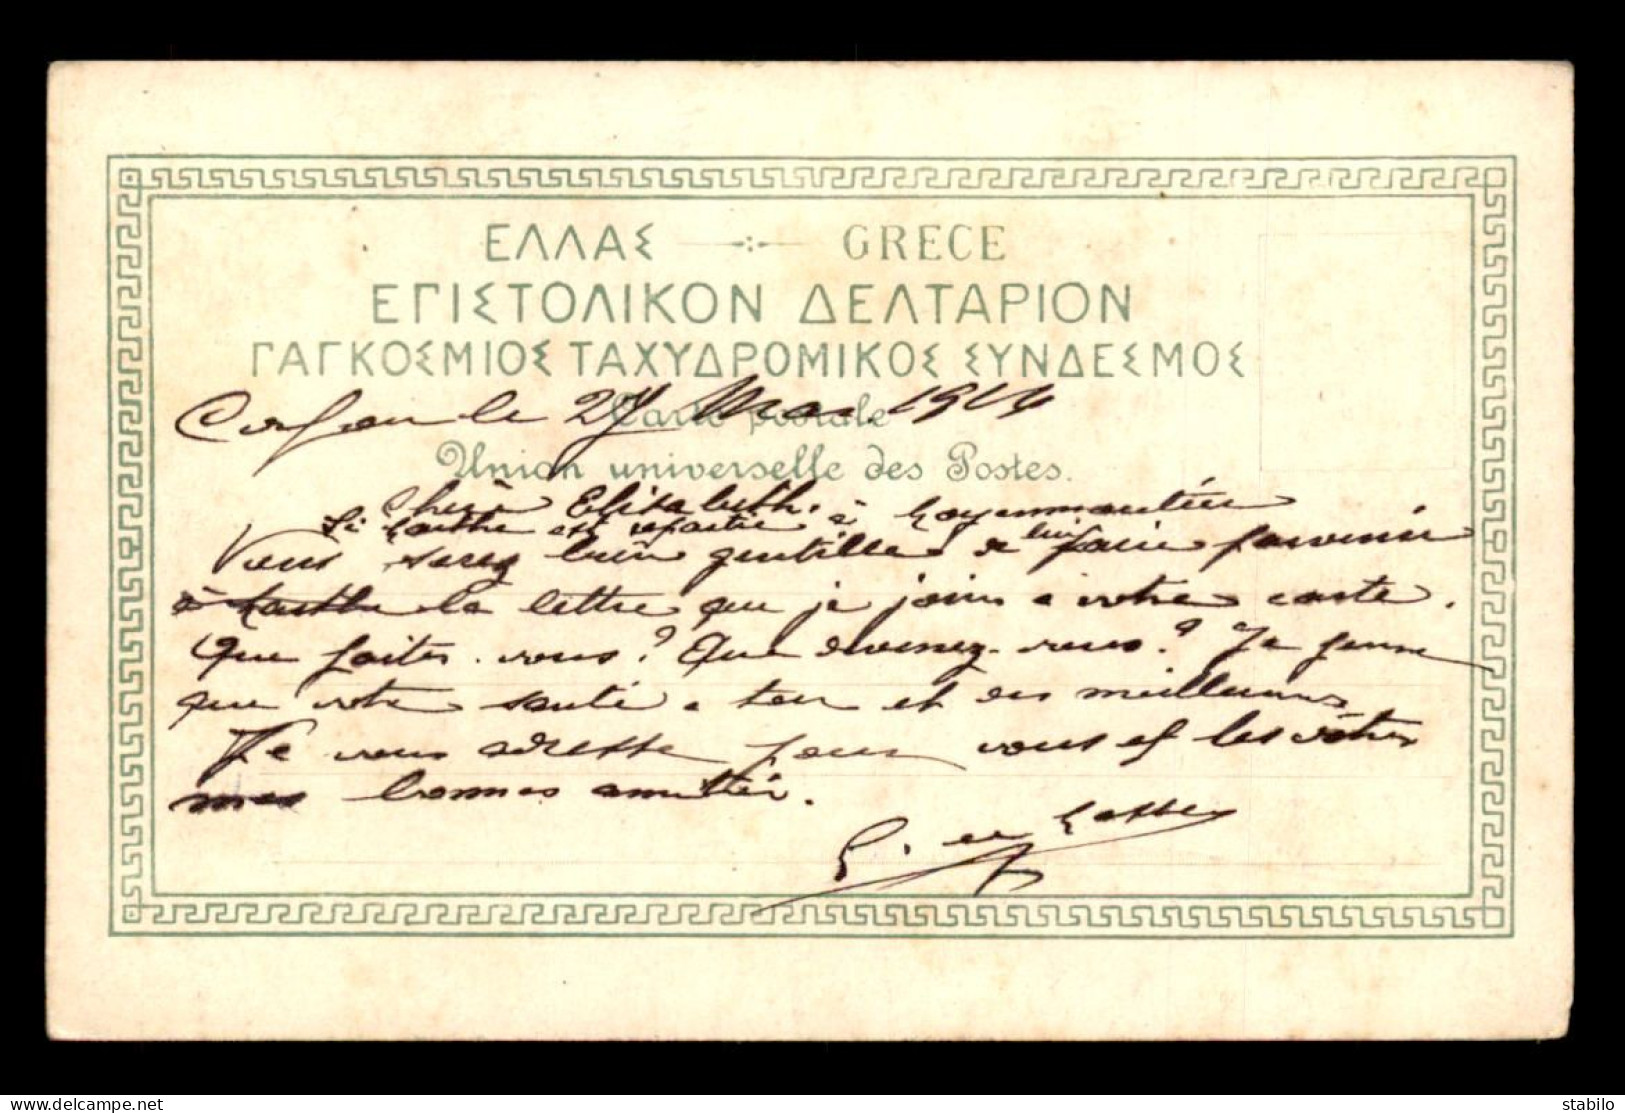 ΕΛΛΑΣ GRECE
ΕΠΙΣΤΟΛΙΚΟΝ ΔΕΛΤΑΡΙΟΝ
ΠΑΓΚΟΣΜΙΟΣ ΤΑΧΥΔΡΟΜΙΚΟΣ ΣΥΝΔΕΣΜΟΣ
Carte postale
Corfou le 27 Mai 1914
Union universelle des Postes.
Chère Elisabeth.
Si est repartie à
Vous serez bien gentille de lui faire parvenir
à la lettre que je joins à votre carte.
Que faites-vous? Que devenez-vous? Je pense
que votre santé a et des meilleures
Je vous adresse pour vous et les vôtres
mes bonnes amitiés.
delcampe.net
stabilo